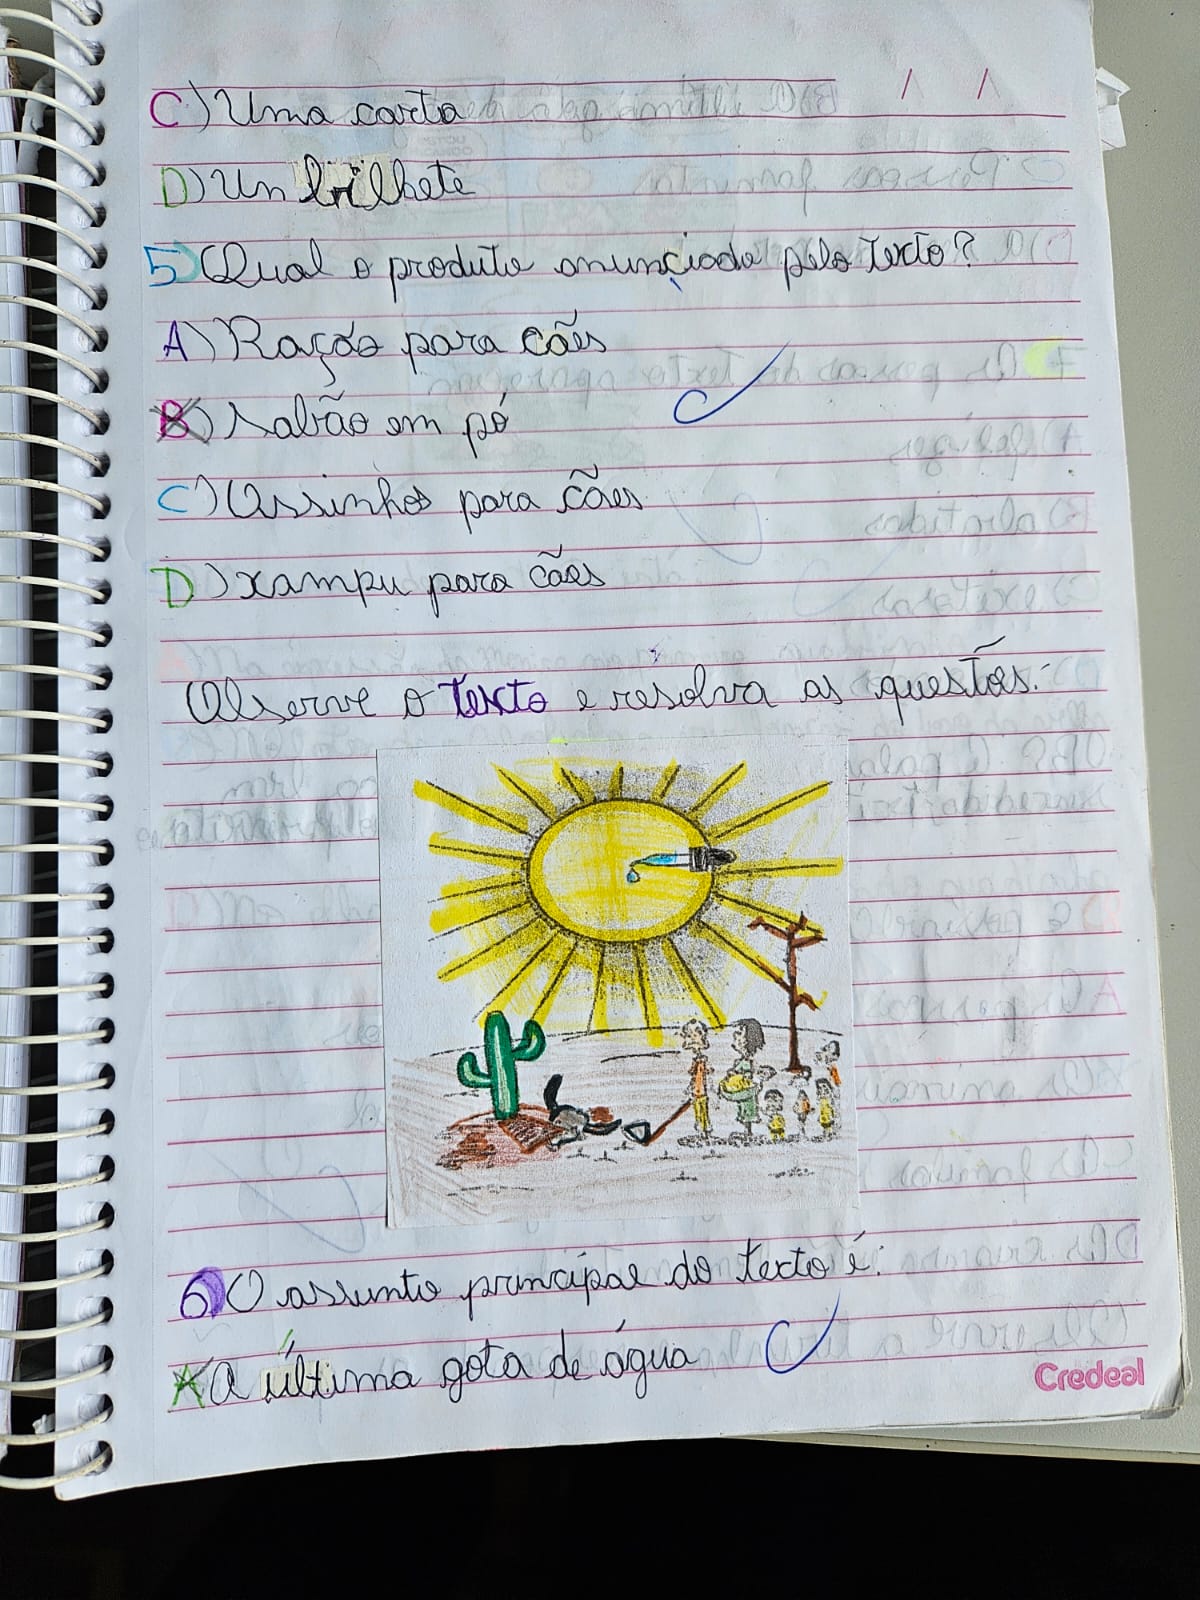 C) Uma carta
D) Un brilhete
5) Qual o produto anunciado pelo texto?
A) Ração para cães
B) sabão em pó
C) Ossinhos para cães
D) xampu para cães
Observe o texto e resolva as questões:
6) O assunto principal do texto é:
A) A última gota de água
Credeal